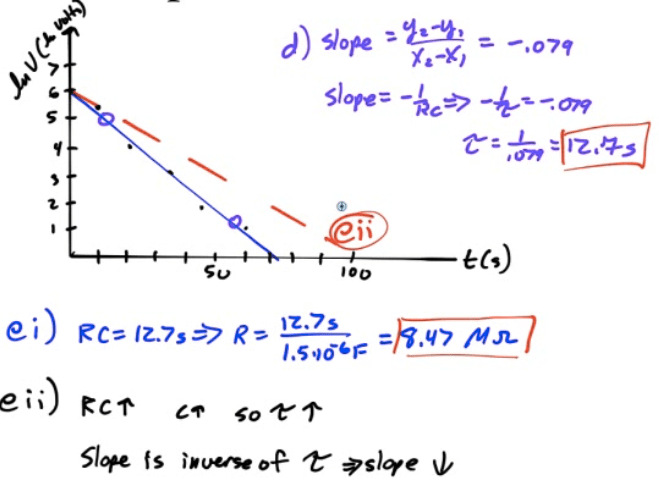 ln V (ln volts)
7
6
5
4
3
2
1
50
100
t(s)
eii
d) slope = y₂-y₁ / x₂-x₁ = -.079
slope = -1/RC ⇒ -1/τ = -.079
τ = 1/.079 = 12.7s
ei) RC = 12.7s ⇒ R = 12.7s / 1.5x10⁻⁶F = 8.47 MΩ
eii) RC↑ C↑ so τ↑
Slope is inverse of τ ⇒ slope ↓